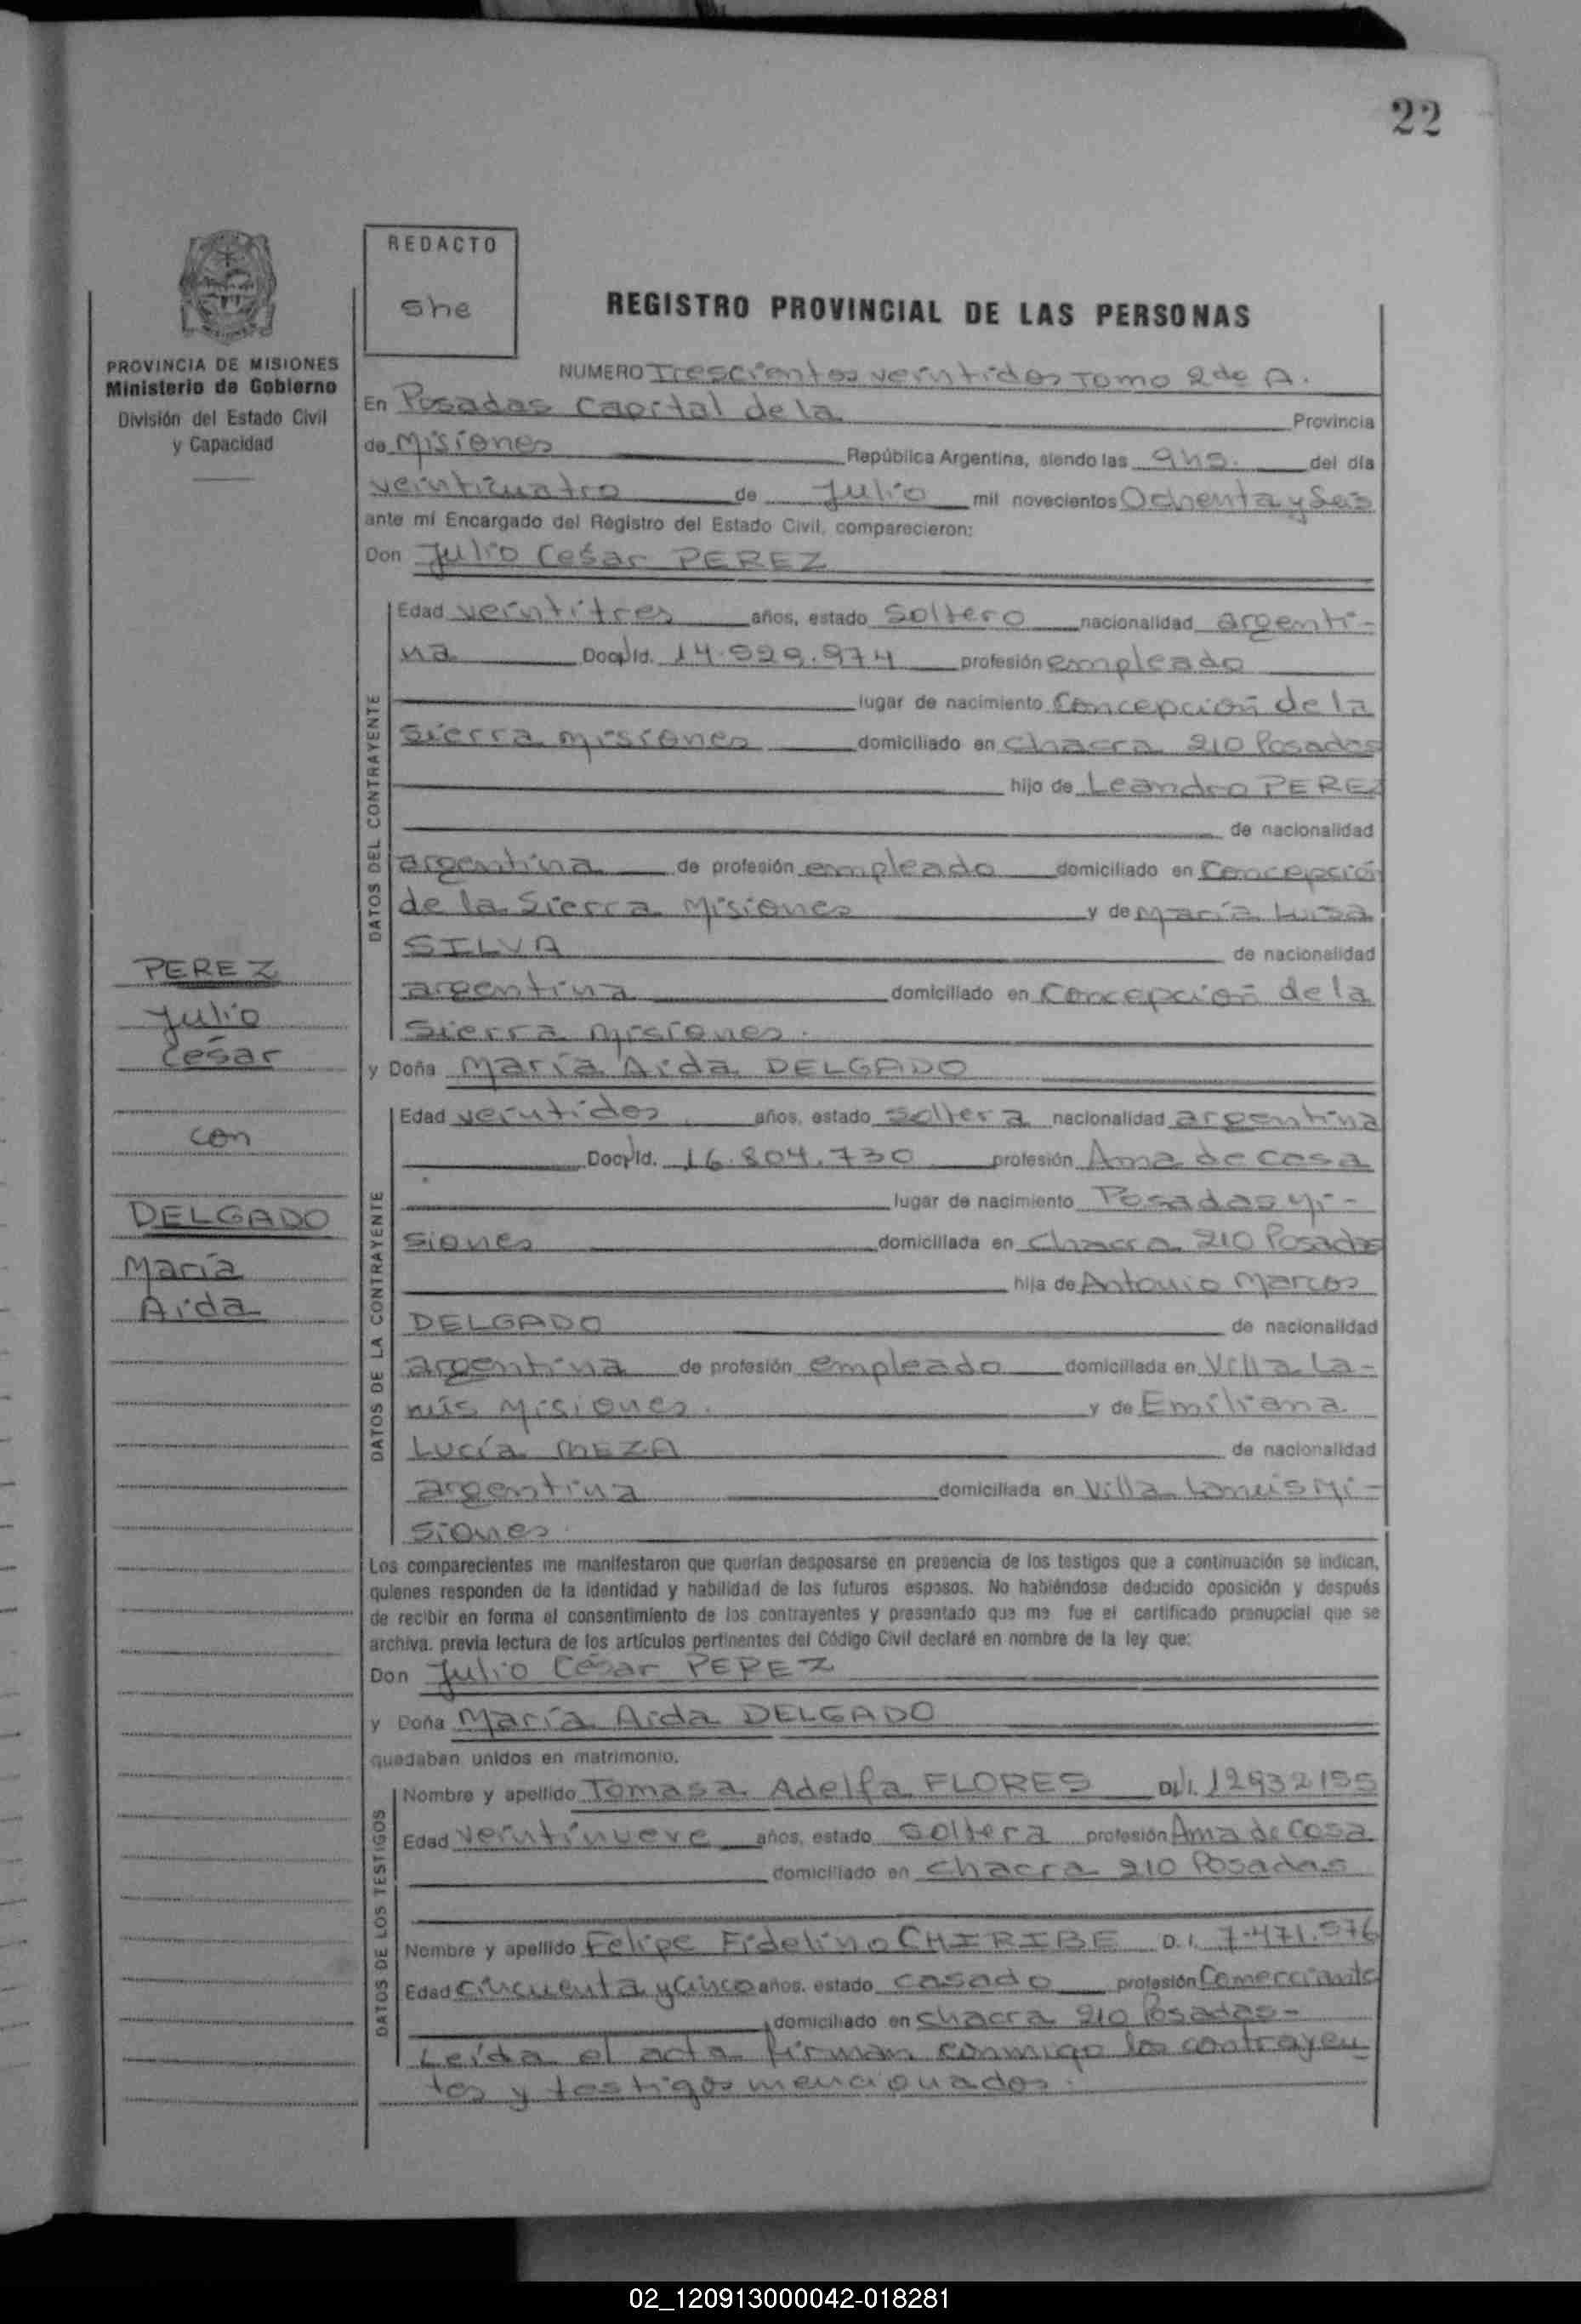 22
REDACTO
she
REGISTRO PROVINCIAL DE LAS PERSONAS
PROVINCIA DE MISIONES
Ministerio de Gobierno
División del Estado Civil
y Capacidad
NUMERO Trescientos veintidos Tomo 2do A.
En Posadas Capital de la Provincia
de Misiones República Argentina, siendo las 9hs. del día
veinticuatro de Julio mil novecientos Ochenta y Seis
ante mí Encargado del Registro del Estado Civil, comparecieron:
Don Julio César PEREZ
DATOS DEL CONTRAYENTE
Edad veintitres años, estado Soltero nacionalidad argenti-
na Doc. Id. 14.929.974 profesión empleado
lugar de nacimiento Concepción de la
Sierra Misiones domiciliado en Chacra 210 Posadas
hijo de Leandro PEREZ
de nacionalidad
argentina de profesión empleado domiciliado en Concepción
de la Sierra Misiones y de María Luisa
SILVA de nacionalidad
argentina domiciliado en Concepción de la
Sierra Misiones.
PEREZ
Julio
César
con
DELGADO
María
Aida
y Doña María Aida DELGADO
DATOS DE LA CONTRAYENTE
Edad veintidos años, estado Soltera nacionalidad argentina
Doc. Id. 16.804.730 profesión Ama de casa
lugar de nacimiento Posadas Mi-
siones domiciliada en Chacra 210 Posadas
hija de Antonio Marcos
DELGADO de nacionalidad
argentina de profesión empleado domiciliada en Villa La-
nús Misiones. y de Emiliana
Lucía MEZA de nacionalidad
argentina domiciliada en Villa Lanús Mi-
siones.
Los comparecientes me manifestaron que querían desposarse en presencia de los testigos que a continuación se indican,
quienes responden de la identidad y habilidad de los futuros esposos. No habiéndose deducido oposición y después
de recibir en forma el consentimiento de los contrayentes y presentado que me fue el certificado prenupcial que se
archiva, previa lectura de los artículos pertinentes del Código Civil declaré en nombre de la ley que:
Don Julio César PEREZ
y Doña María Aida DELGADO
quedaban unidos en matrimonio.
DATOS DE LOS TESTIGOS
Nombre y apellido Tomasa Adelfa FLORES D.I. 12932155
Edad veintinueve años, estado Soltera profesión Ama de Casa
domiciliado en Chacra 210 Posadas
Nombre y apellido Felipe Fidelino CHIRIBE D.I. 7.471.576
Edad cincuenta y cinco años, estado casado profesión Comerciante
domiciliado en Chacra 210 Posadas-
Leída el acta firman conmigo los contrayen
tes y testigos mencionados.
02_120913000042-018281